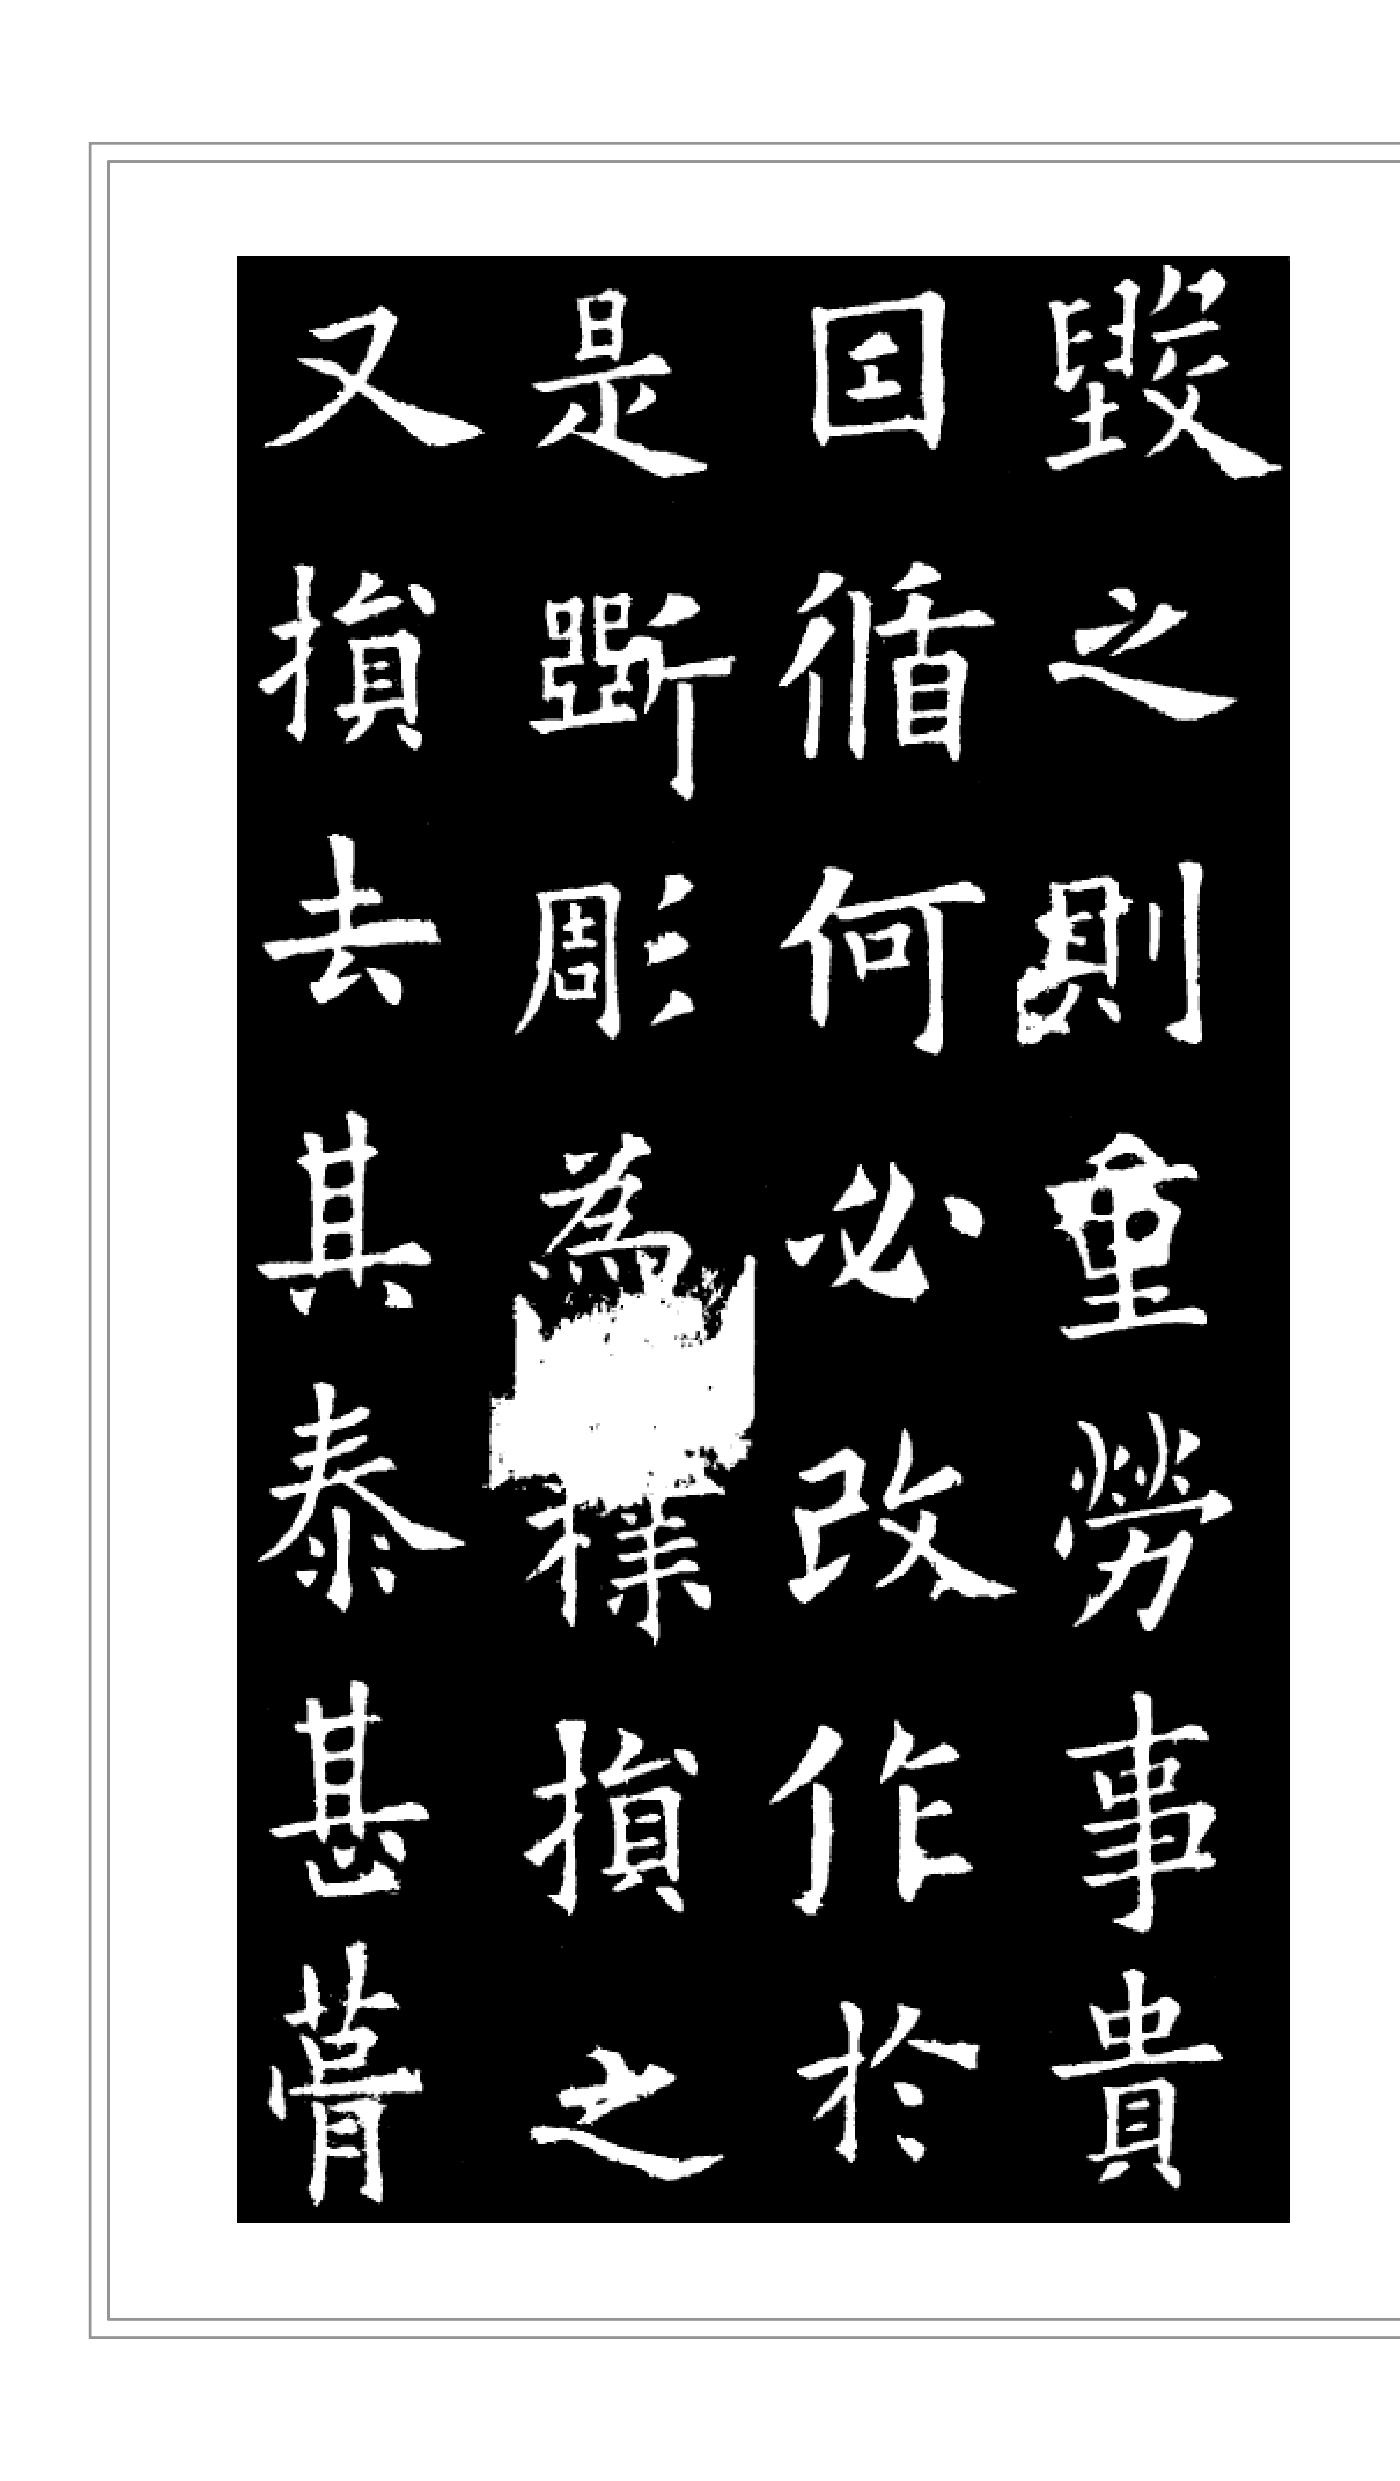 毀之則重勞事貴
因循何必改作於
是斲彫為樸損之
又損去其泰甚葺